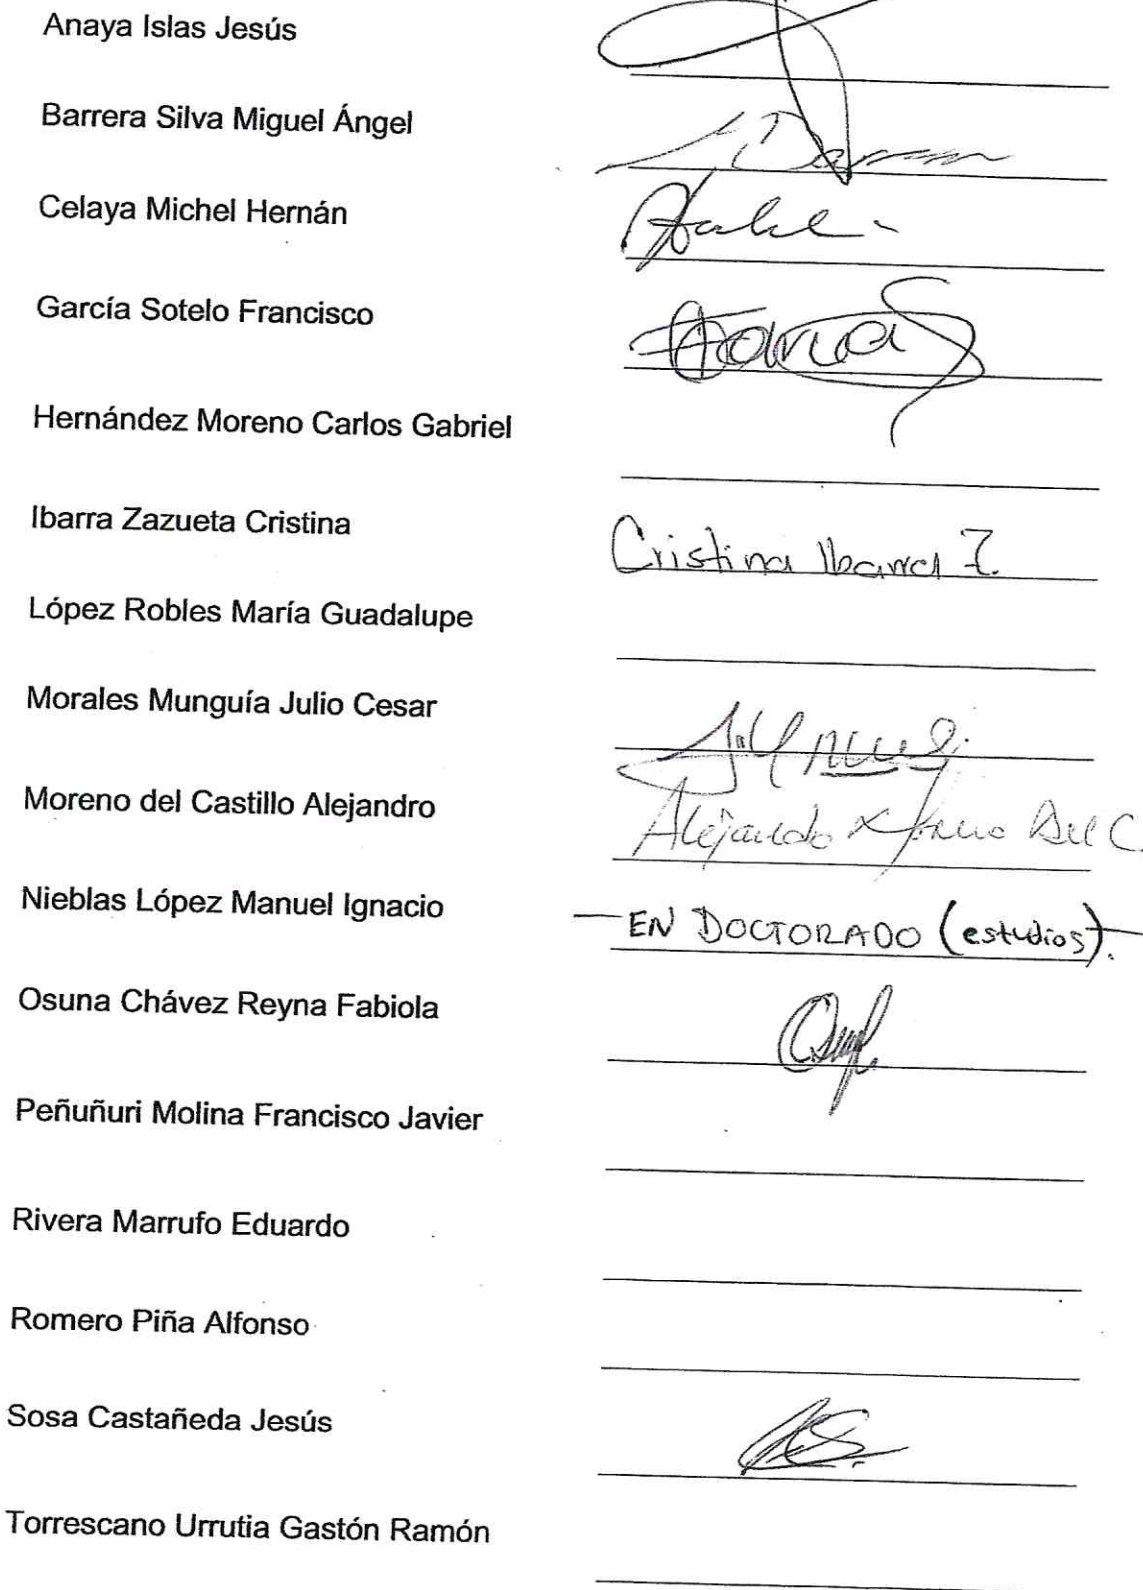 Anaya Islas Jesús
Barrera Silva Miguel Ángel
Celaya Michel Hernán
García Sotelo Francisco
Hernández Moreno Carlos Gabriel
Ibarra Zazueta Cristina
Cristina Ibarra Z.
López Robles María Guadalupe
Morales Munguía Julio Cesar
Moreno del Castillo Alejandro
Alejandro Moreno Del C.
Nieblas López Manuel Ignacio
EN DOCTORADO (estudios).
Osuna Chávez Reyna Fabiola
Peñuñuri Molina Francisco Javier
Rivera Marrufo Eduardo
Romero Piña Alfonso
Sosa Castañeda Jesús
Torrescano Urrutia Gastón Ramón